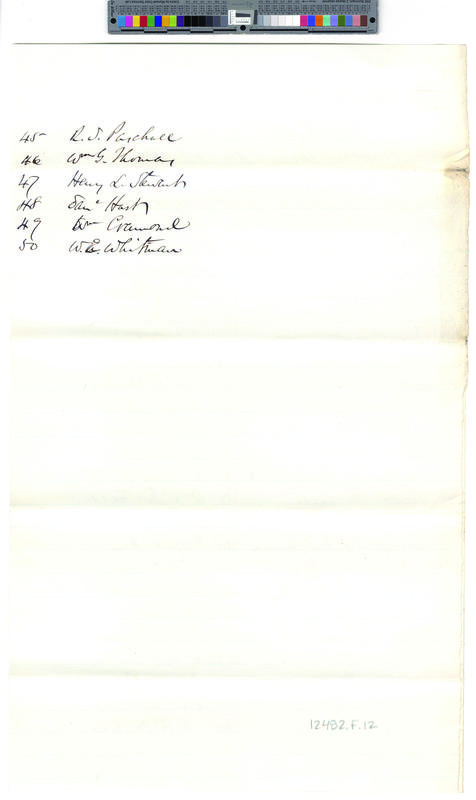 45 R. S. Paschall
46 Wm G. Thomas
47 Henry L. Stewart
48 Saml Hart
49 Wm Cramond
50 W. E. Whitman
12492.F.12